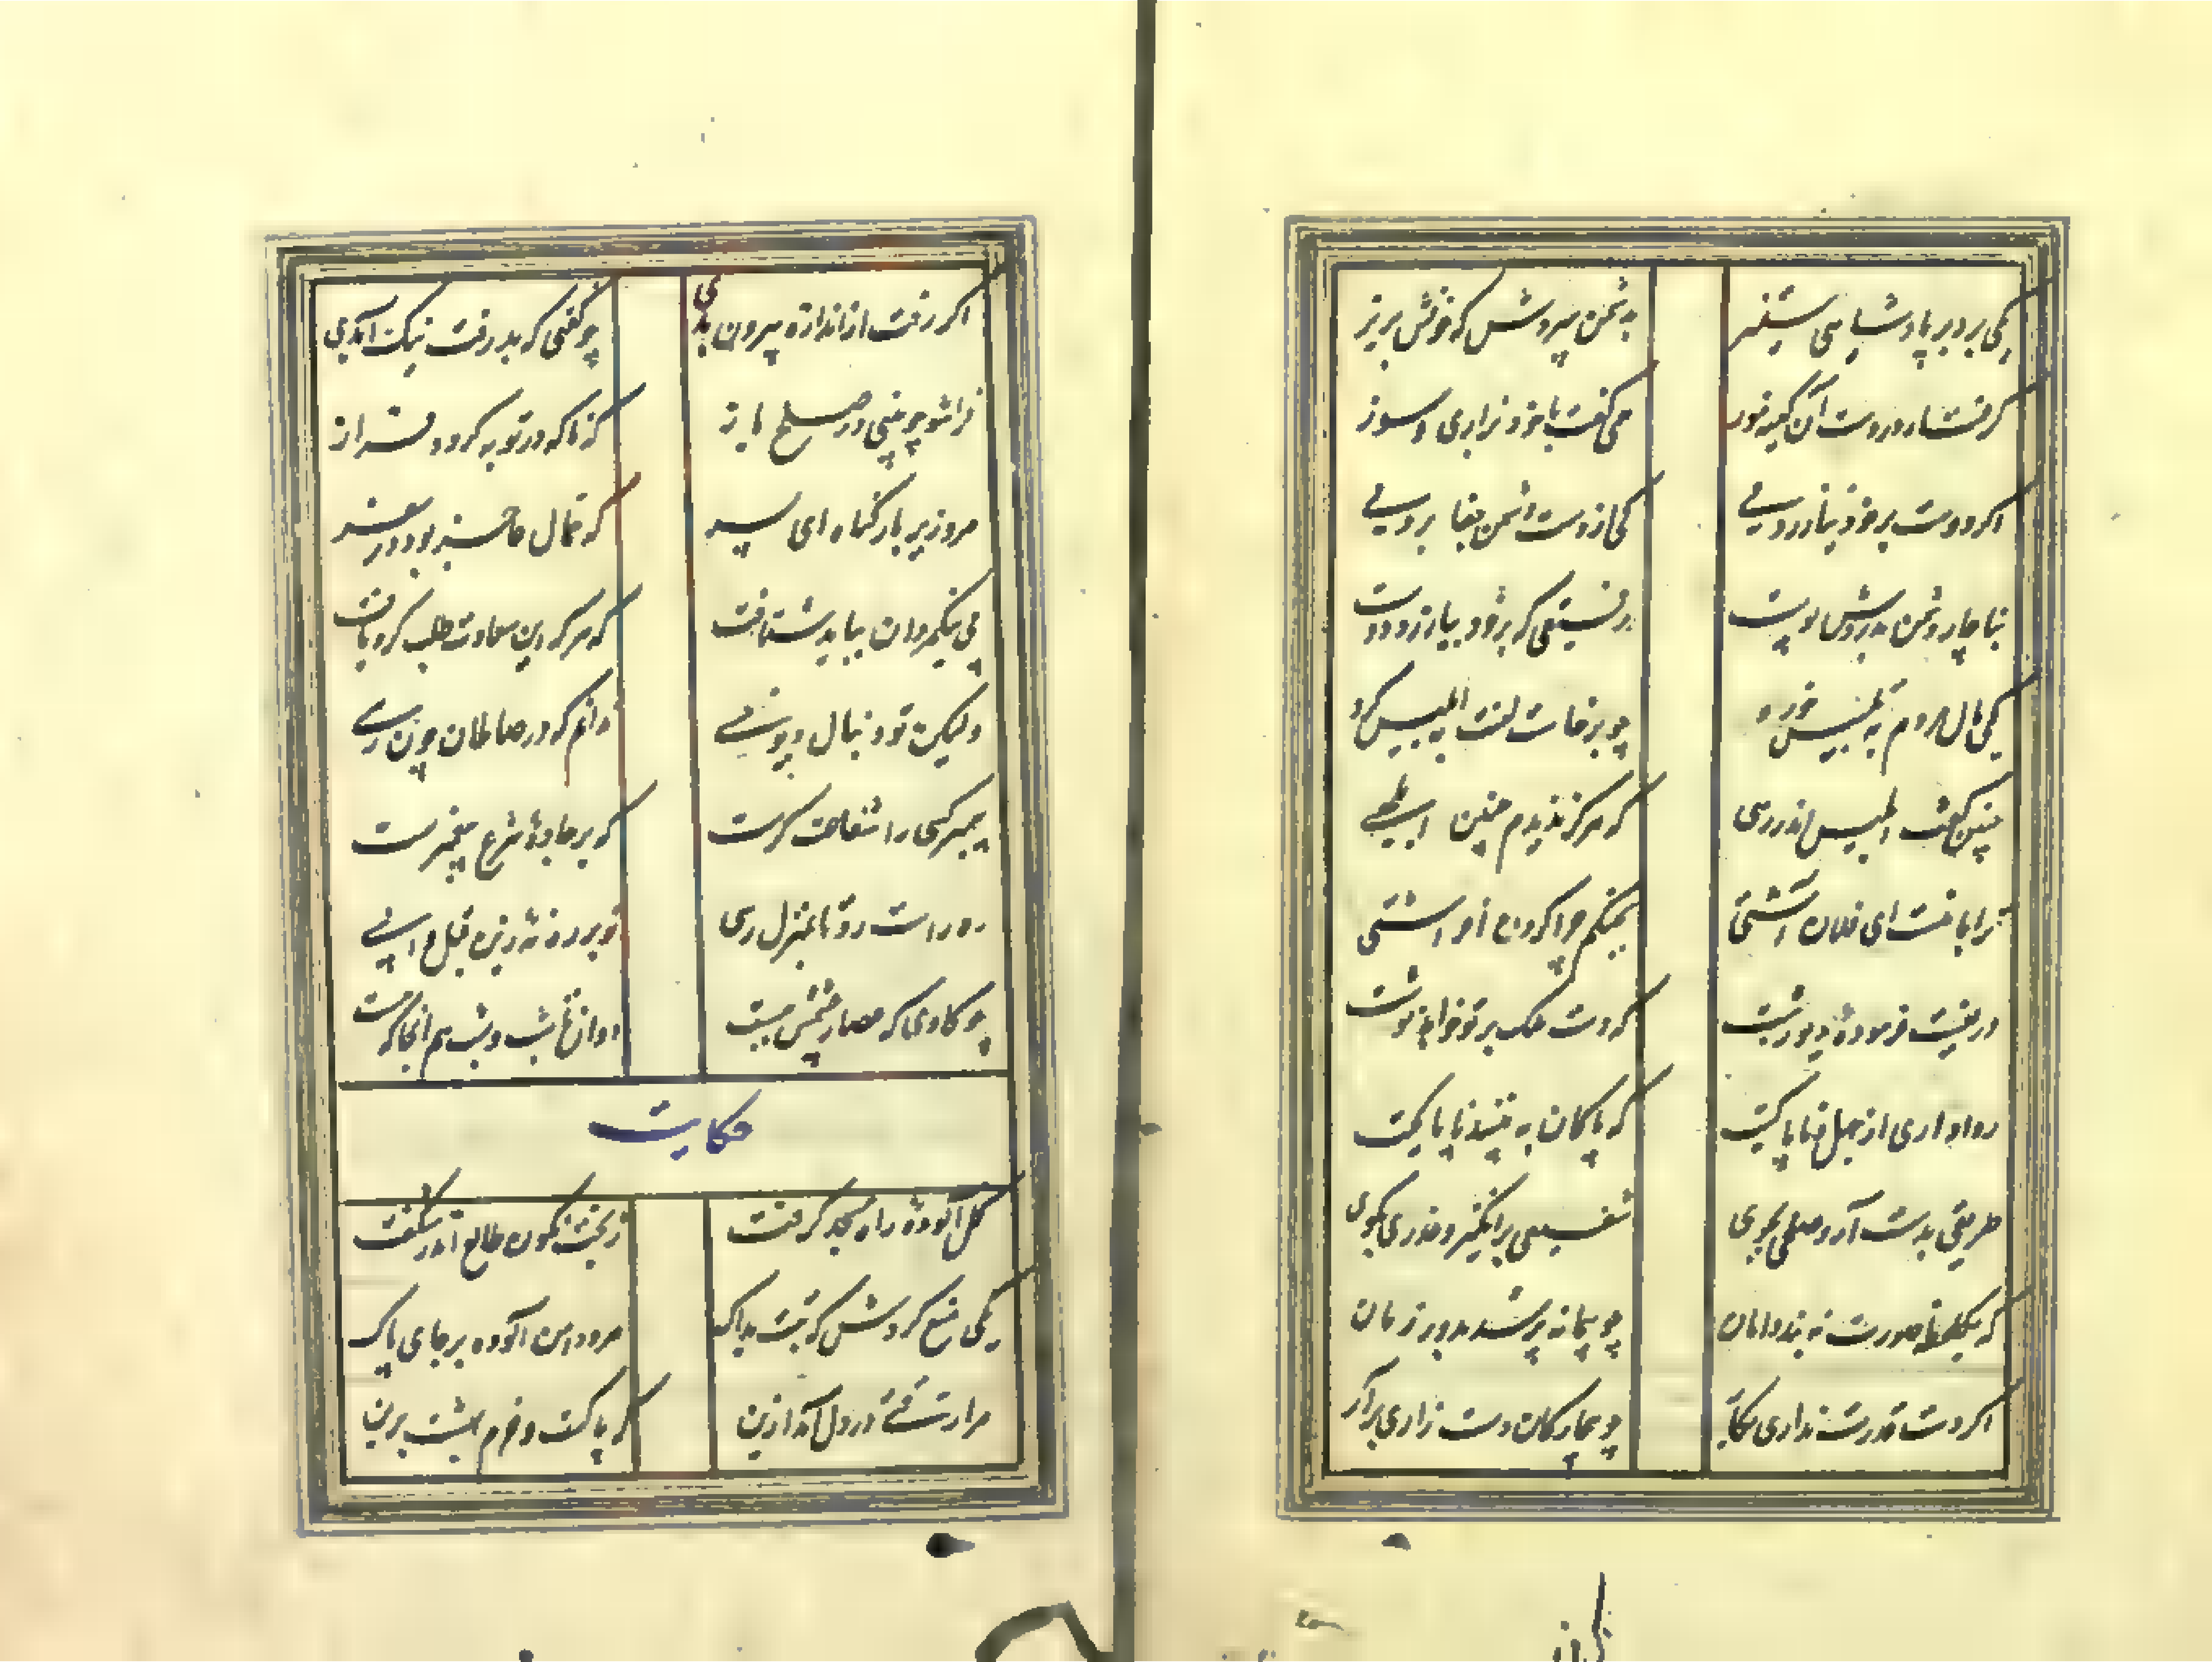 یکی برد بر پادشاهی ستیز
به دشمن سپردش که خونش بریز
گرفتار در دست آن کینه‌توز
همی گفت با خود بزاری و سوز
اگر دوست بر خود نیازردمی
کی از دست دشمن جفا بردمی
بناچار دشمن بدردش پوست
رفیقی که بر خود بیازرد دوست
یکی مال مردم به تلبیس خورد
چو برخاست لعنت به ابلیس کرد
چنین گفت ابلیس اندر رهی
که هرگز ندیدم چنین ابلهی
ترا با منست ای فلان آشتی
بجنگم چرا گردن افراشتی
دریغست فرموده دیو زشت
که دست ملک بر تو خواهد نوشت
روا داری از جهل ناپاکیت
که پاکان نویسند ناپاکیت
طریقی بدست آر و صلحی بجوی
شفیعی برانگیز و عذری بگوی
که یک لحظه صورت نبندد امان
چو پیمانه پر شد بدور زمان
اگر دست قدرت نداری بکار
چو بیچارگان دست زاری برآر
اگر رفت از اندازه بیرون بدی
چو گفتی که بد رفت نیک آمدی
فرا شو چو بینی در صلح باز
که ناگه در توبه گردد فراز
مرو زیر بار گناه ای پسر
که حمال عاجز بود در سفر
پی نیک‌مردان بباید شتافت
که هر که این سعادت طلب کرد یافت
ولیکن تو دنبال دیو خسی
ندانم که در صالحان چون رسی
پیمبر کسی را شفاعت گرست
که بر جاده شرع پیغمبرست
ره راست رو تا بمنزل رسی
تو بر ره نه زین قبل واپسی
چو گاوی که عصار چشمش ببست
دوان تا بشب و شب هم آنجا که هست
حکایت
گل‌آلوده راه مسجد گرفت
ز بخت نگون طالع اندر شگفت
یکی منع کردش که تبت یداک
مرو دامن آلوده بر جای پاک
مرا رقتی در دل آمد ازین
که پاکست و خرم بهشت برین